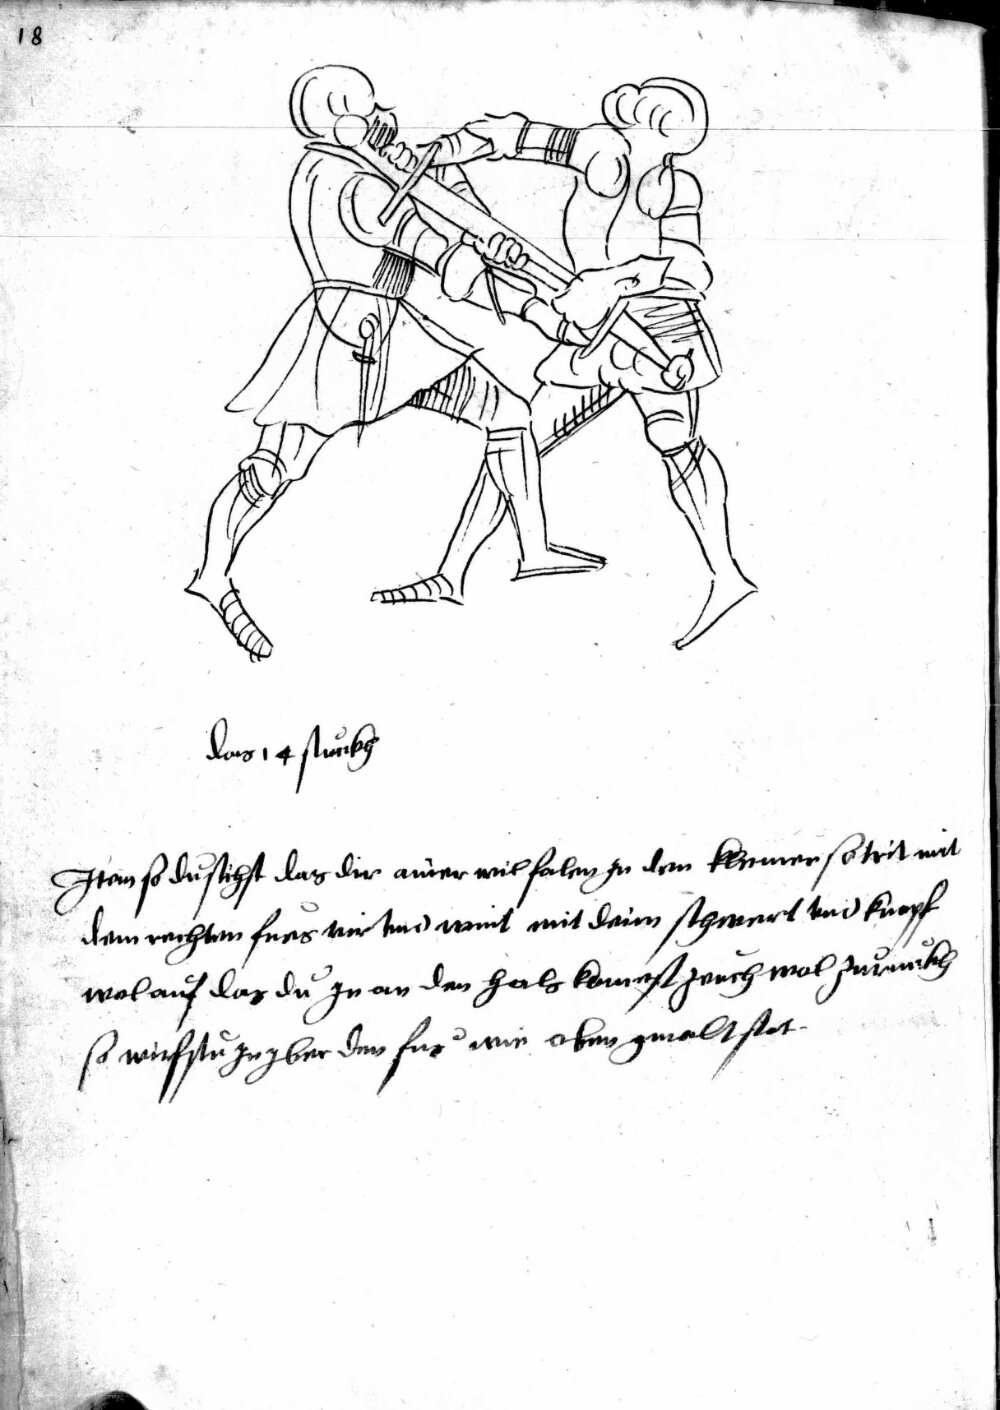 18
das 14 stuckh
Item so du sichst das dir ainer wil falen in den so trit mit
dem rechten fues vir und wint mit deim schwert und knopf
wol auf das du in an den hals komest zeuch wol zuruckh
so wirfstu in yber den fus wie oben gmalt stet